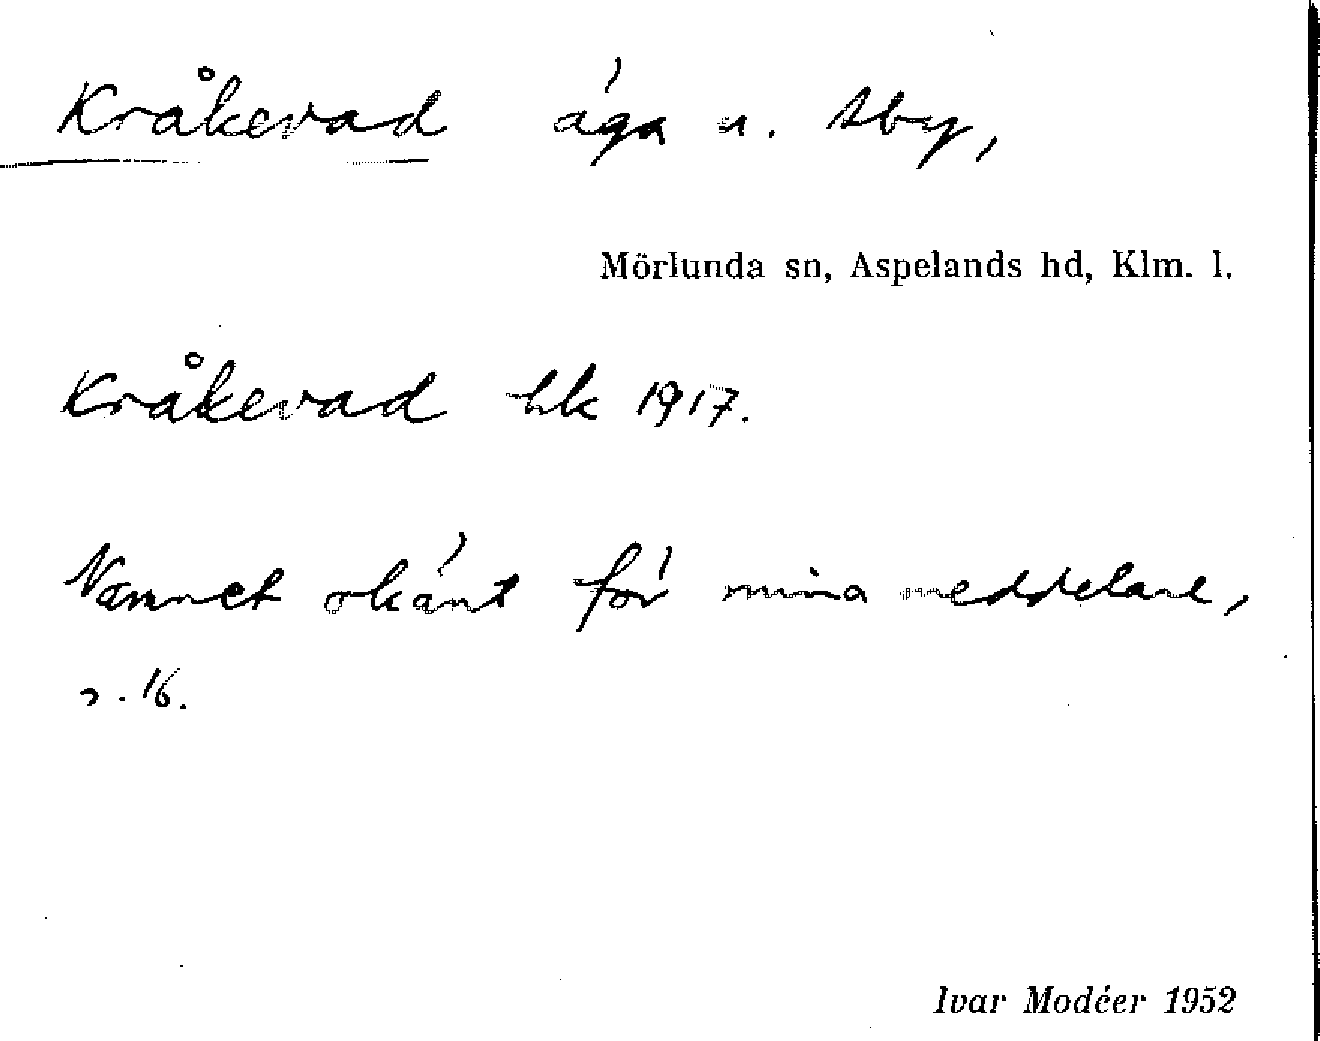 Kråkevad äga u. Åby,
Mörlunda sn, Aspelands hd, Klm. l.
Kråkevad hk 1917.
Namnet okänt för mina meddelare,
s. 16.
Ivar Modéer 1952